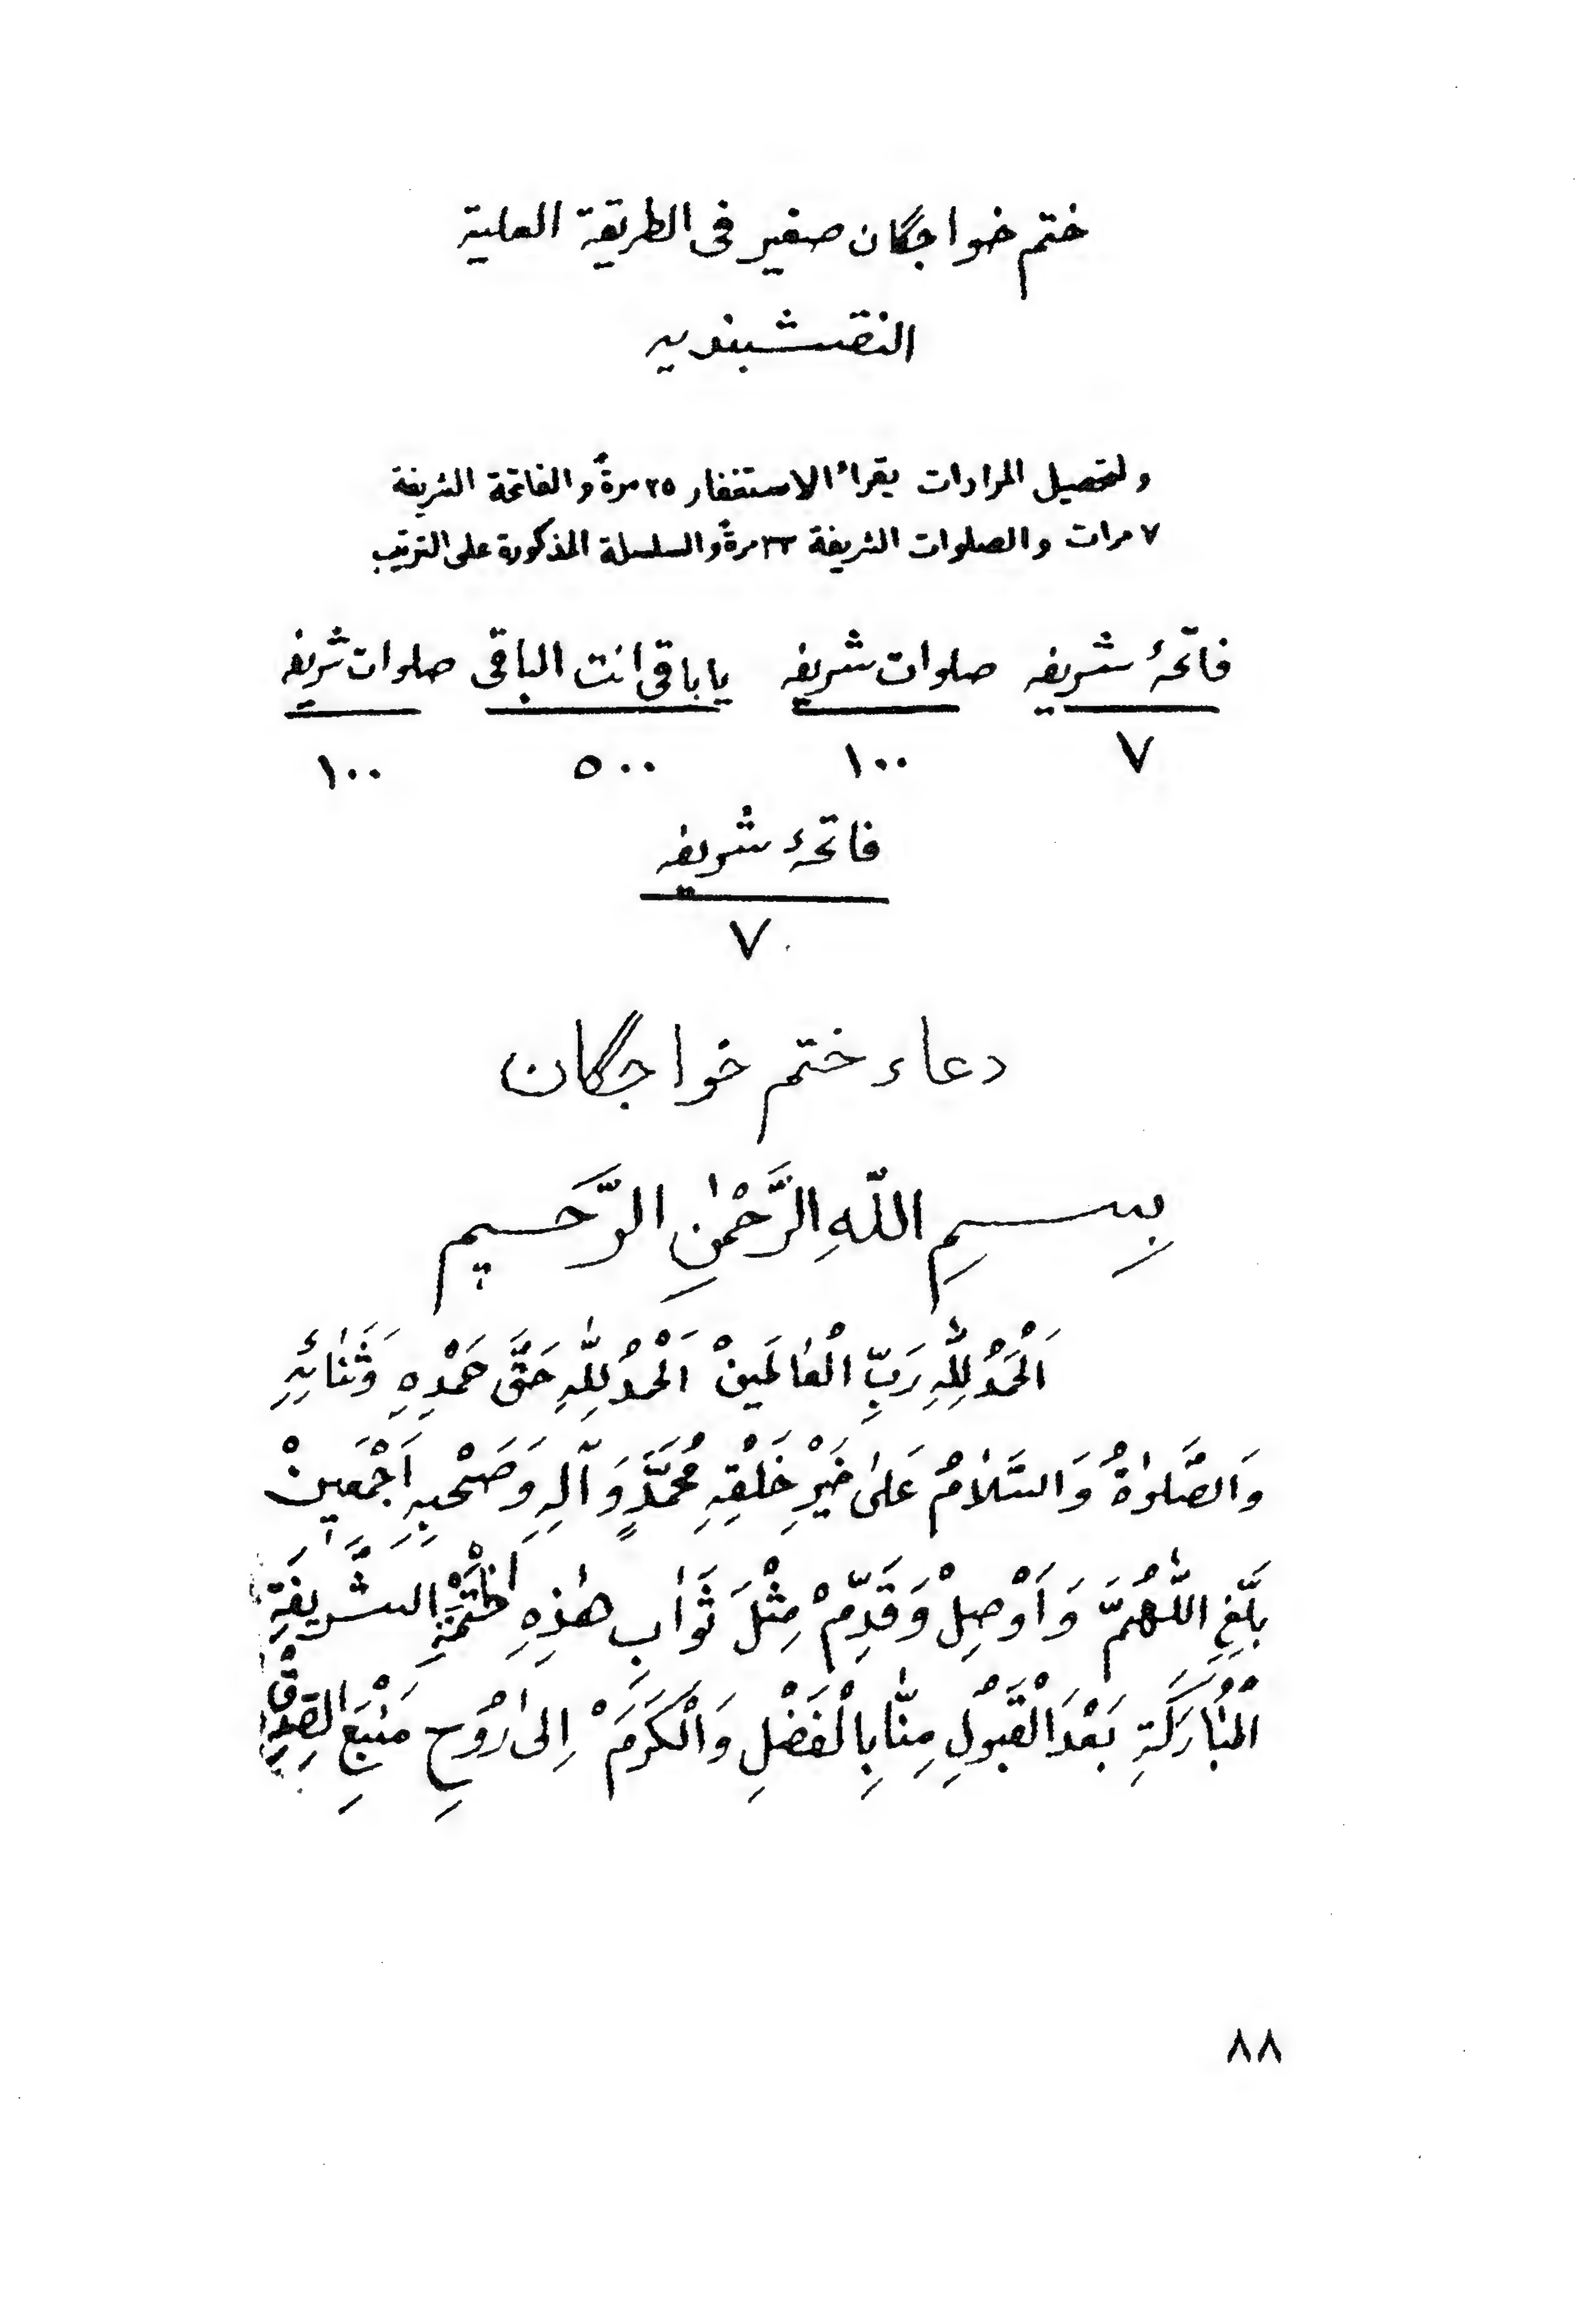 ختم خواجگان صغير فى الطريقة العلية
النقشبنديه
ولتحصيل المرادات يقراء الاستغفار ٢٥ مرةً والفاتحة الشريفة
٧ مرات والصلوات الشريفة مرةً والسلسلة المذكورة على الترتيب
فاتحهٔ شريفه صلوات شريفه ياباقى انت الباقى صلوات شريفه
٧ ١٠٠ ٥٠٠ ١٠٠
فاتحهٔ شريفه
٧
دعاء ختم خواجگان
بِسمِ اللّهِ الرَّحْمٰنِ الرَّحَيم
اَلْحَمْدُ لِلّٰهِ رَبِّ الْعٰالَمَينْ اَلْحَمْدُ لِلّٰهِ حَقَّ حَمْدِهِ وَثَنٰائِهِ
وَالصَّلوٰةُ وَالسَّلاٰمُ عَلىٰ خَيْرِ خَلْقِهِ مُحَمَّدٍ وَآلِهِ وَصَحْبِهِ اَجْمَعَينْ
بَلِّغِ اللّٰهُمَّ وَاَوْصِلْ وَقَدِّمْ مِثْلَ ثَوٰابِ هٰذِهِ الْخَتْمَةِ الشَّرِيفَةِ
الْمُبٰارَكَةِ بَعْدَ الْقَبُوْلِ مِنّٰا بِالْفَضْلِ وَالْكَرَمَ اِلىٰ رُوْحِ مَنْبَعِ الصِدْقِ
٨٨